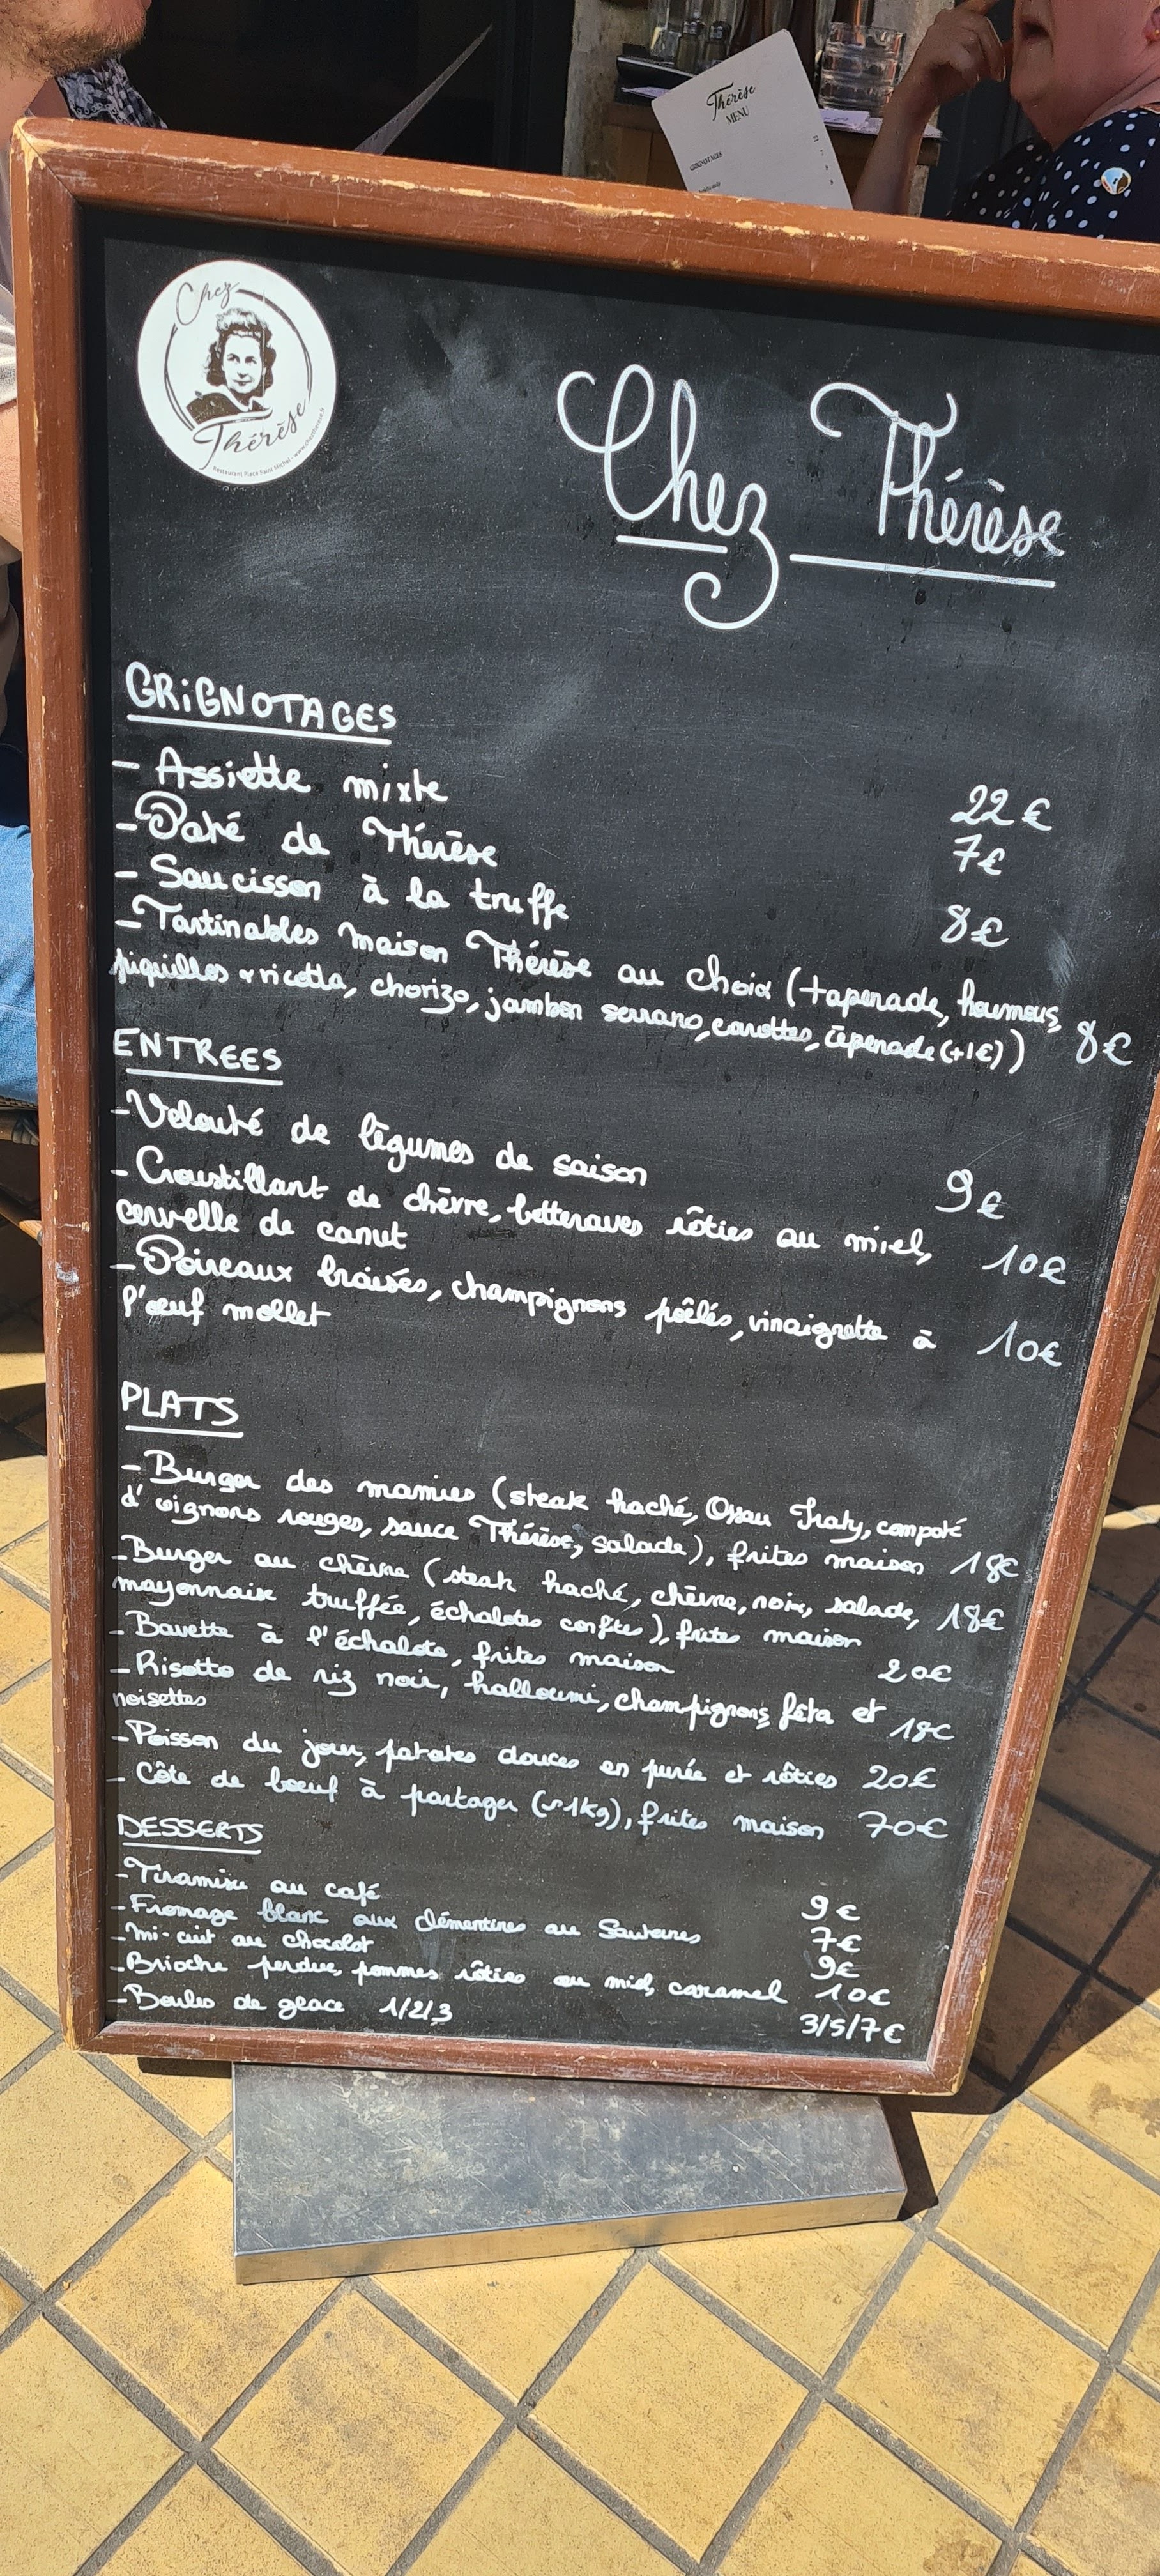 Thérèse
MENU
GRIGNOTAGES
Chez
Thérèse
Restaurant Place Saint Michel - www.cheztherese.fr
Chez Thérèse
GRiGNOTAGES
- Assiette mixte 22€
- Paté de Thérèse 7€
- Saucisson à la truffe 8€
- Tartinables maison Thérèse au choix (tapenade, houmous,
piquillos & ricotta, chorizo, jambon serrano, carottes, cèpenade (+1€)) 8€
ENTREES
- Velouté de légumes de saison 9€
- Croustillant de chèvre, betteraves rôties au miel,
cervelle de canut 10€
- Poireaux braisés, champignons poêlés, vinaigrette à
l'œuf mollet 10€
PLATS
- Burger des mamies (steak haché, Ossau Iraty, compoté
d'oignons rouges, sauce Thérèse, salade), frites maison 18€
- Burger au chèvre (steak haché, chèvre, noix, salade,
mayonnaise truffée, échalotes confites), frites maison 18€
- Bavette à l'échalote, frites maison 20€
- Risotto de riz noir, halloumi, champignons, fêta et
noisettes 18€
- Poisson du jour, patates douces en purée et rôties 20€
- Côte de boeuf à partager (~1kg), frites maison 70€
DESSERTS
- Tiramisu au café 9€
- Fromage blanc aux clémentines au Sauternes 7€
- mi-cuit au chocolat 9€
- Brioche perdue, pommes rôties au miel, caramel 10€
- Boules de glace 1/2/3 3/5/7€